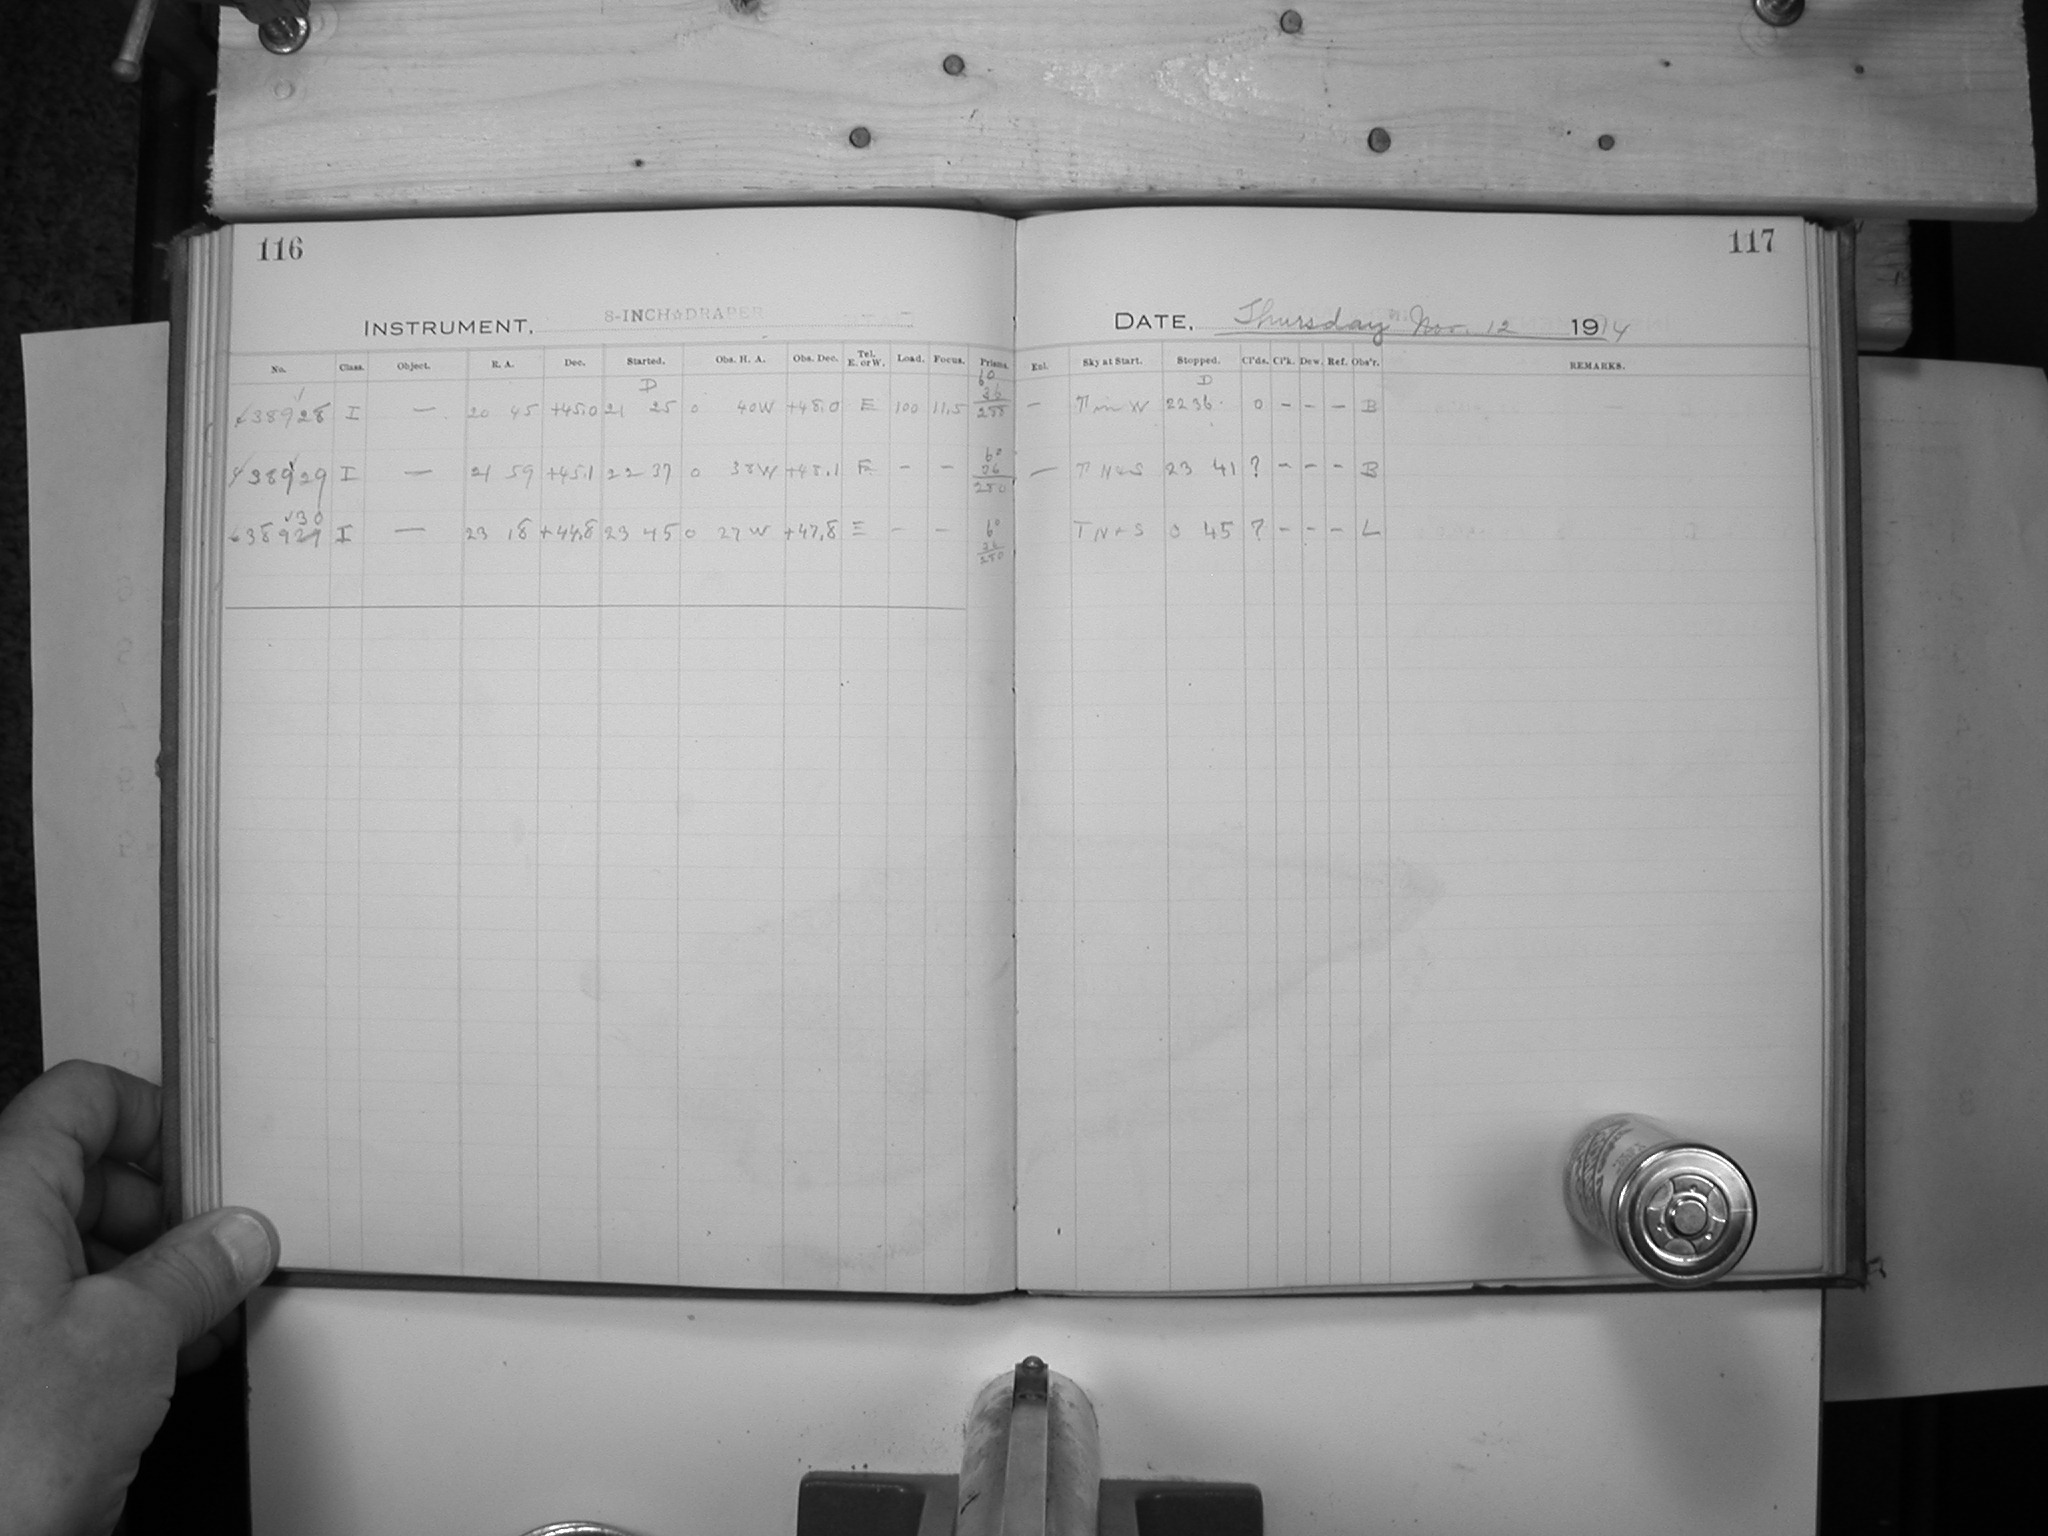 116
117
INSTRUMENT, 8-INCH DRAPER
DATE, Thursday Nov. 12 1914
No. Class. Object. R. A. Dec. Started. Obs. H. A. Obs. Dec. Tel. E. or W. Load. Focus. Prisms. Enl. Sky at Start. Stopped. Cl'ds. Cl'k. Dew. Ref. Obs'r. REMARKS.
D 60 D
38928 I — 20 45 +45.0 21 25 0 40W +48.0 E 100 11.5 — in W 22 36 0 – – – B
38929 I — 21 59 +45.1 22 37 0 38W +48.1 E – – 60 36 280 — N+S 23 41 ? – – – B
30
38929 I — 23 18 +44.8 23 45 0 27W +47.8 E – – 60 36 280 T N+S 0 45 ? – – – L